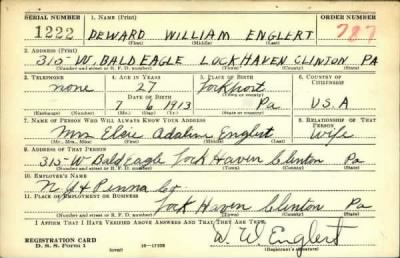 SERIAL NUMBER 1. NAME (Print) ORDER NUMBER
1222 DEWARD WILLIAM ENGLERT 787
(First) (Middle) (Last)
2. ADDRESS (Print)
315-W. BALD EAGLE LOCKHAVEN CLINTON PA
(Number and street or R. F. D. number) (Town) (County) (State)
3. TELEPHONE 4. AGE IN YEARS 5. PLACE OF BIRTH 6. COUNTRY OF CITIZENSHIP
none 27 Lockport
DATE OF BIRTH (Town or county)
7 6 1913 Pa U.S.A
(Exchange) (Number) (Mo.) (Day) (Yr.) (State or country)
7. NAME OF PERSON WHO WILL ALWAYS KNOW YOUR ADDRESS 8. RELATIONSHIP OF THAT PERSON
Mrs Elsie Adaline Englert Wife
(Mr., Mrs., Miss) (First) (Middle) (Last)
9. ADDRESS OF THAT PERSON
315-W Bald eagle Lock Haven Clinton Pa
(Number and street or R. F. D. number) (Town) (County) (State)
10. EMPLOYER'S NAME
N. Y & Penna Co.
11. PLACE OF EMPLOYMENT OR BUSINESS
Lock Haven Clinton Pa
(Number and street or R. F. D. number) (Town) (County) (State)
I AFFIRM THAT I HAVE VERIFIED ABOVE ANSWERS AND THAT THEY ARE TRUE.
REGISTRATION CARD D. W Englert
D. S. S. Form 1 (over) 16-17105 (Registrant's signature)